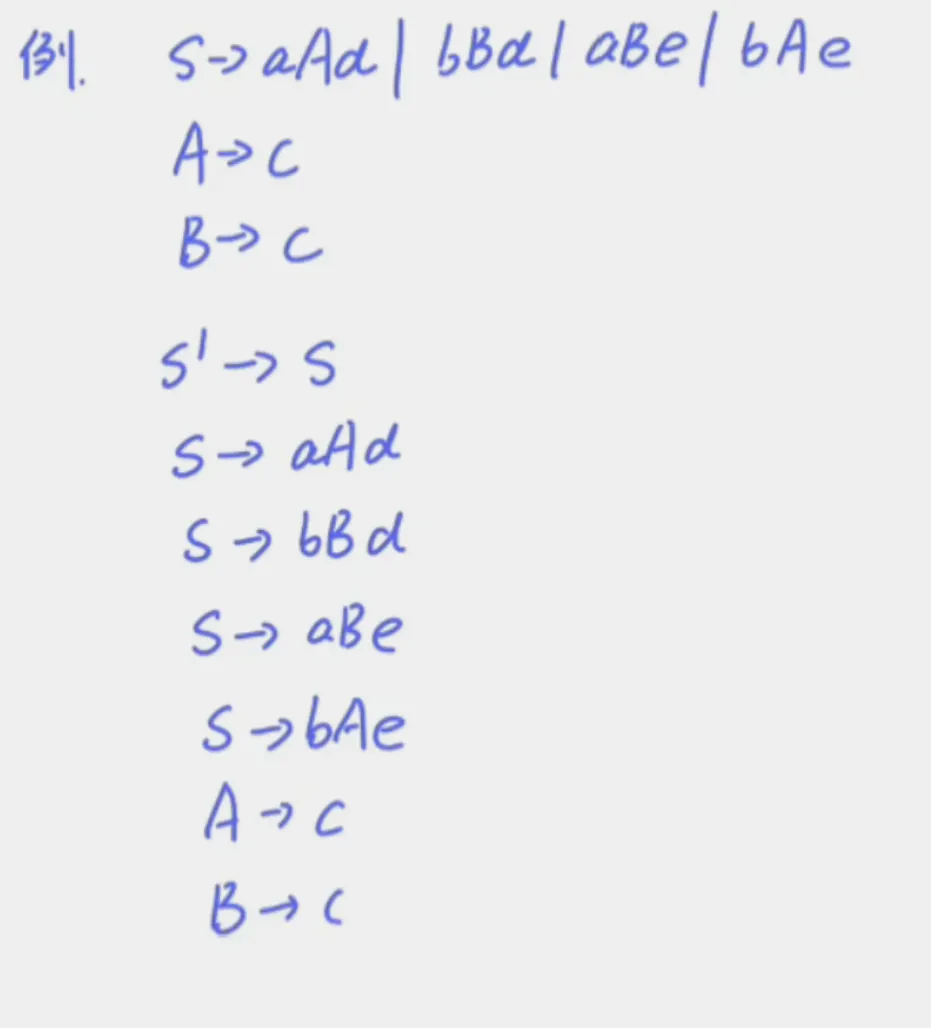 例. S→aAd | bBd | aBe | bAe
A→c
B→c
S'→S
S→aAd
S→bBd
S→aBe
S→bAe
A→c
B→c